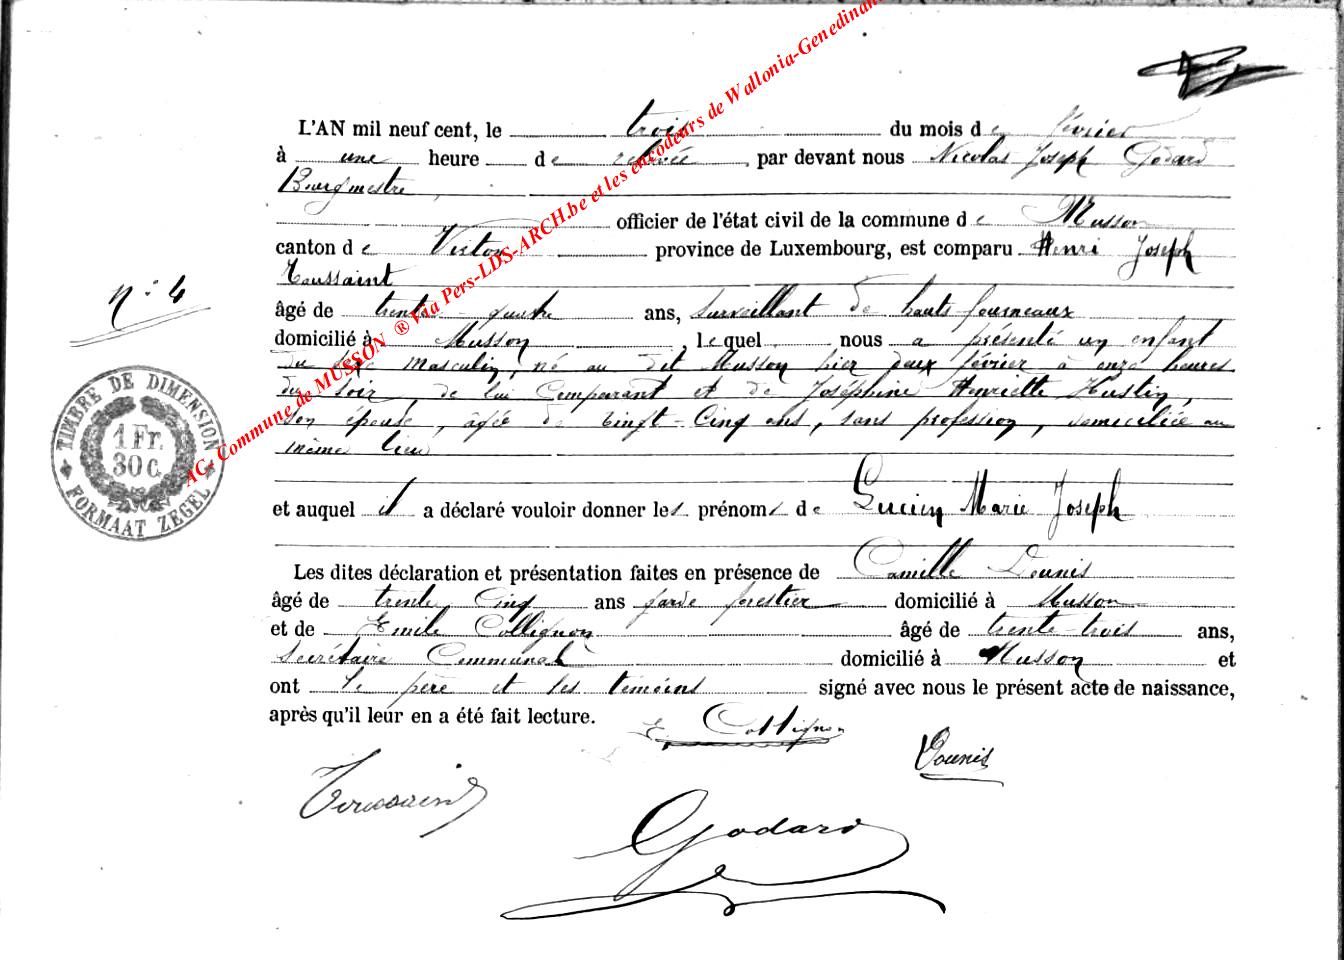 L'AN mil neuf cent, le trois du mois de février
à une heure de relevée, par devant nous Nicolas Joseph Godard
Bourgmestre,
officier de l'état civil de la commune de Musson
canton de Virton province de Luxembourg, est comparu Henri Joseph
Toussaint
âgé de trente-quatre ans, surveillant de hauts-fourneaux
domicilié à Musson, lequel nous a présenté un enfant
du sexe masculin, né au dit Musson hier deux février à onze heures
du soir, de lui Comparant et de Joséphine Henriette Hustin,
son épouse, âgée de vingt-cinq ans, sans profession, domiciliée au
même lieu
et auquel il a déclaré vouloir donner les prénoms de Lucien Marie Joseph
Les dites déclaration et présentation faites en présence de Camille Dounis
âgé de trente cinq ans garde forestier domicilié à Musson
et de Emile Collignon âgé de trente-trois ans,
Secrétaire Communal domicilié à Musson et
ont le père et les témoins signé avec nous le présent acte de naissance,
après qu'il leur en a été fait lecture.
E. Collignon
Dounis
Toussaint
Godard
n° 4
TIMBRE DE DIMENSION
1 Fr.
30 C.
FORMAAT ZEGEL
AC. Commune de MUSSON ® Via Pers-LDS-ARCH.be et les encodeurs de Wallonia-Genedinant